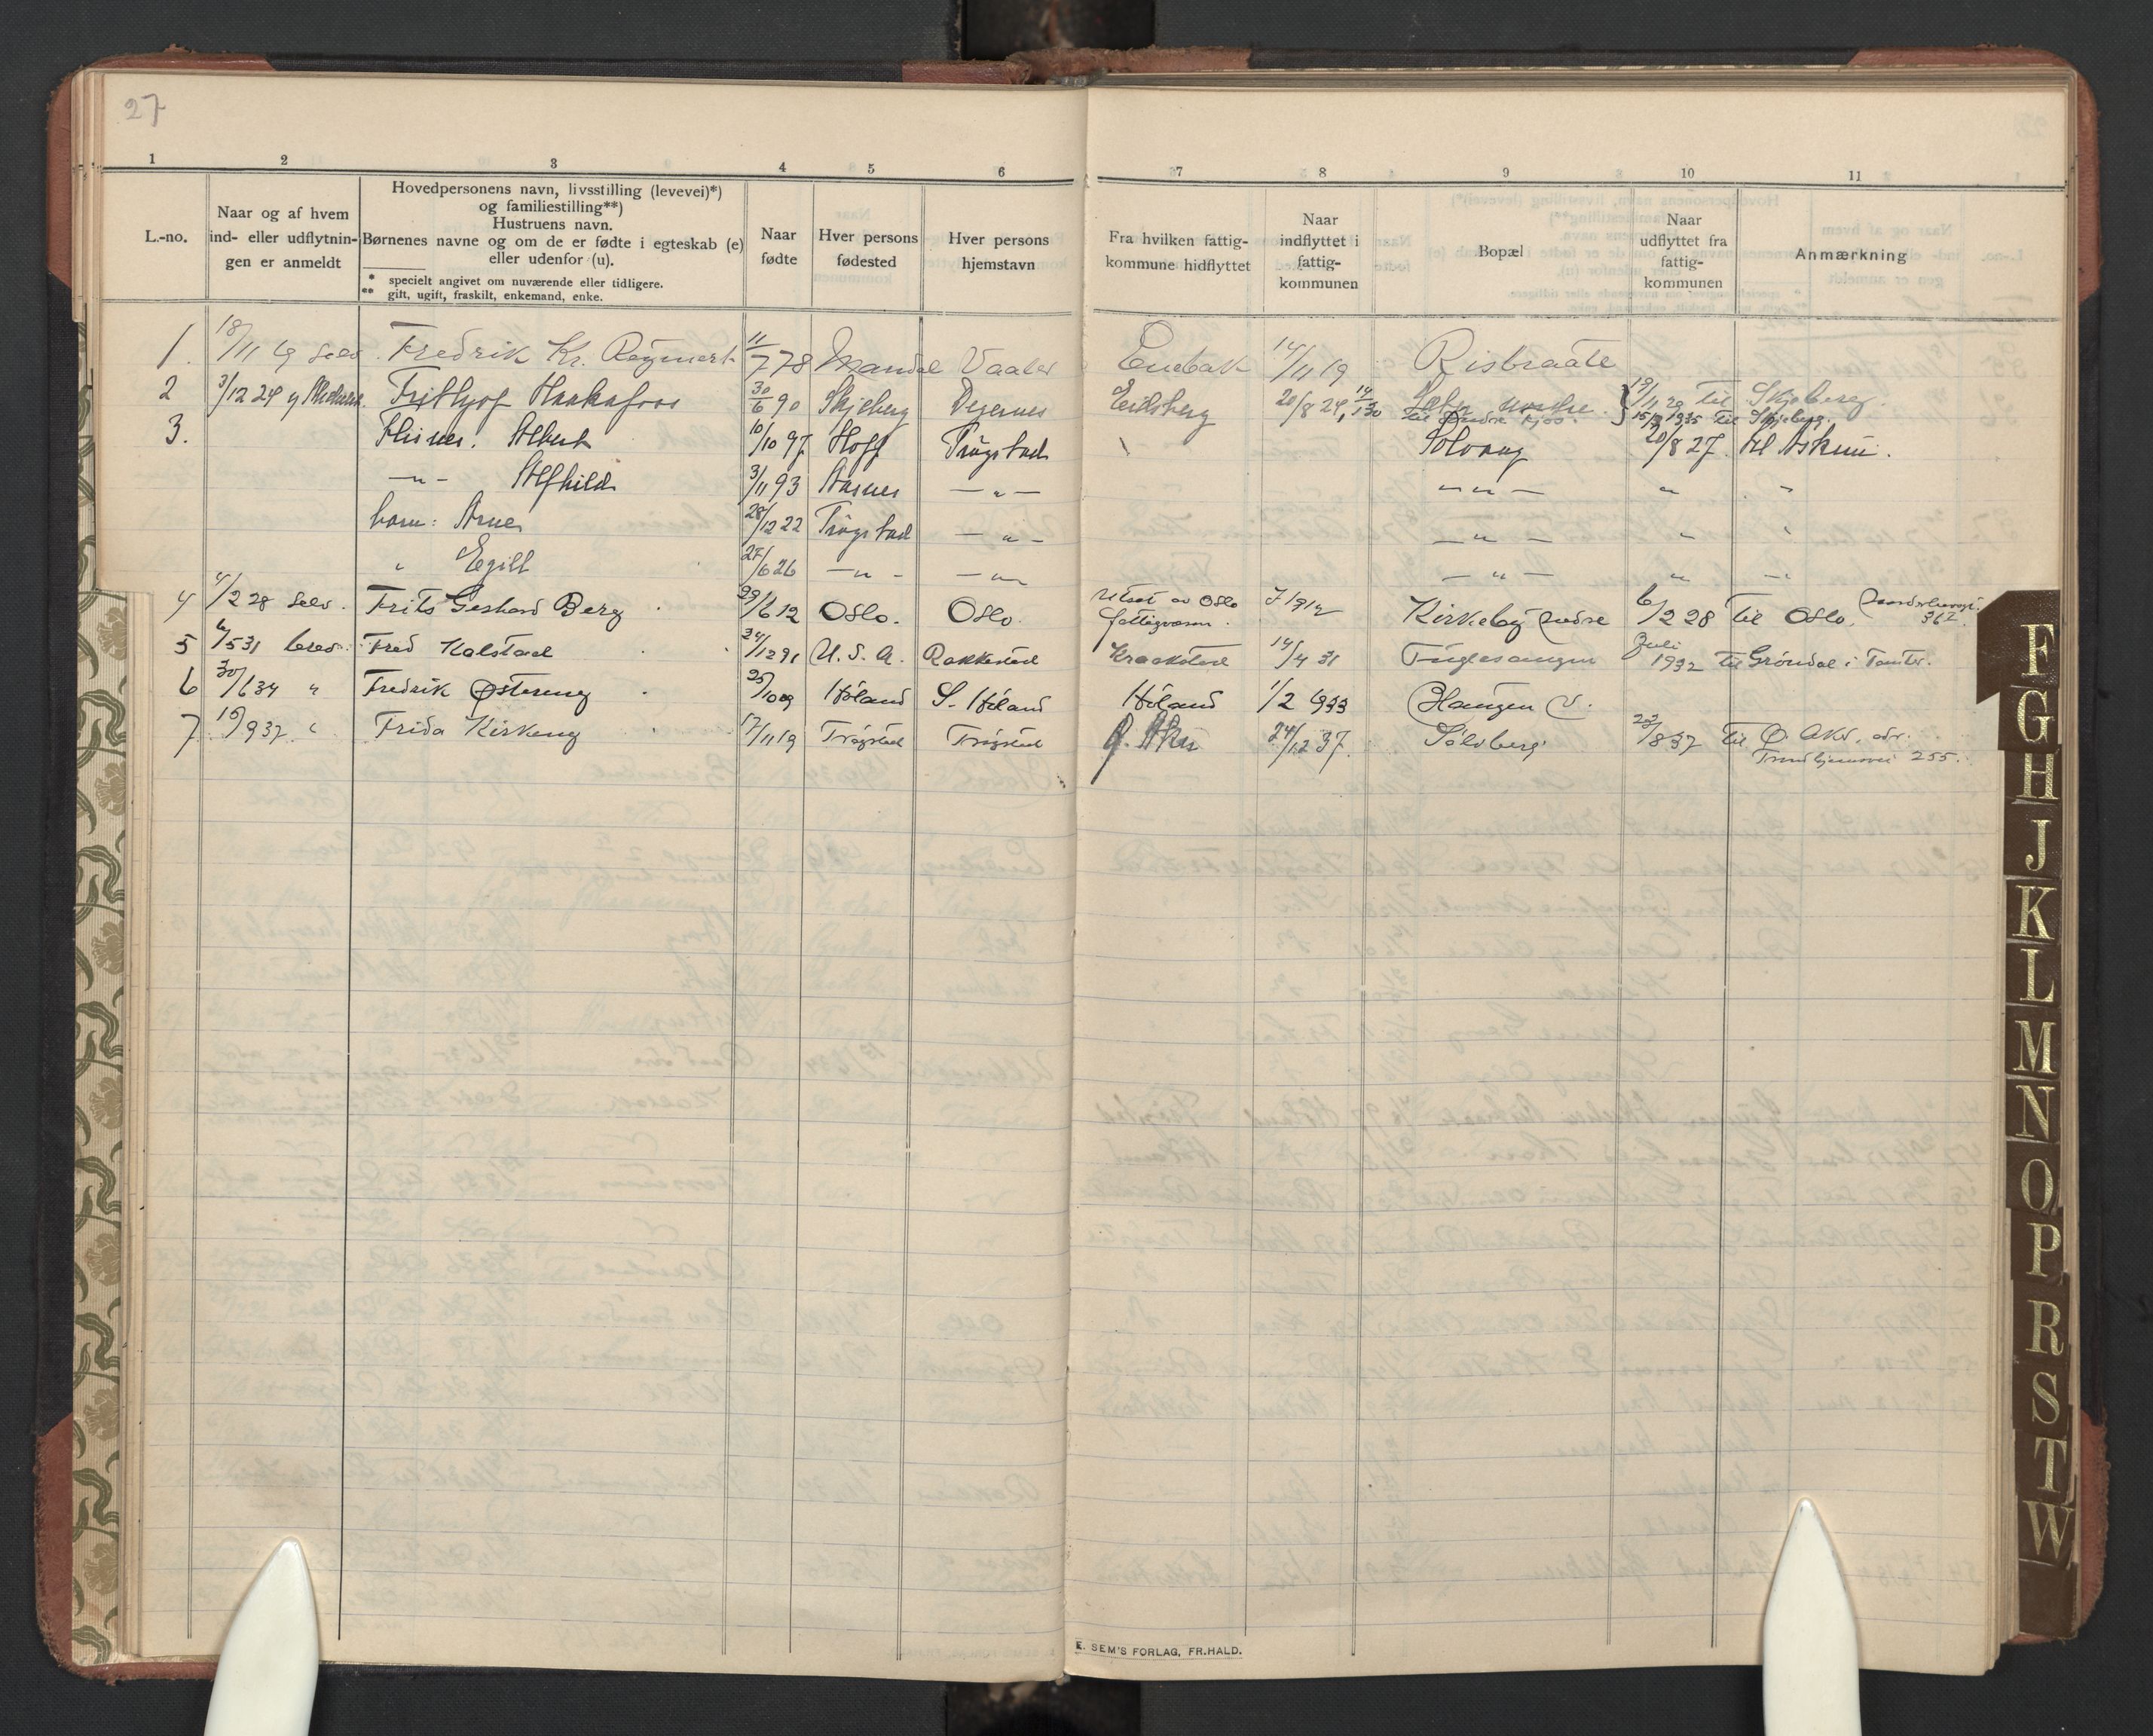 27
1 2 3 4 5 6 7 8 9 10 11
L.-no.
Naar og af hvem
ind- eller udflytnin-
gen er anmeldt
Hovedpersonens navn, livsstilling (levevei)*)
og familiestilling**)
Hustruens navn.
Børnenes navne og om de er fødte i egteskab (e)
eller udenfor (u).
* specielt angivet om nuværende eller tidligere.
** gift, ugift, fraskilt, enkemand, enke.
Naar
fødte
Hver persons
fødested
Hver persons
hjemstavn
Fra hvilken fattig-
kommune hidflyttet
Naar
indflyttet i
fattig-
kommunen
Bopæl
Naar
udflyttet fra
fattig-
kommunen
Anmærkning
1. 18/11 19 selv. Fredrik Kr. Reymert 11/7 78 Mandal Vaaler Enebak 14/11 19 Risbraate
2 3/12 24 Frithjof Haakafoss 30/6 90 Skjeberg Degernes Eidsberg 20/8 24, 14/1 30 19/11 29 til Skjeberg.
til Søndre Kjos. 15/3 1935 til Skjeberg.
3. Albert 10/10 97 Hoff Trøgstad Solvang 20/8 27. til Askim.
— " - Alfhild 3/11 93 Aasnes — " — — " " — " "
barn: Arne 28/12 22 Trøgstad — " — — " — " "
" Egill 27/6 26 — " - — " — — " — " "
4 4/2 28 Selv. Frits Gerhard Berg 29/6 12 Oslo. Oslo. Utsat av Oslo
fattigvæsen. 1912 Kirkeby søndre 6/2 28 til Oslo. 362.
5 6/5 31 Fred Kolstad 24/12 91 U. S. A. Rakkestad Kraakstad 14/4 31 Fuglesangen Juli
1932 til Grøndal i Tomter.
6 30/6 34 " Fredrik Østereng 25/10 09 Høland S. Høland Høland 1/2 933 Haugen V.
7 15/9 37. " Frida Kirkeng 17/11 19 Trøgstad Trøgstad Ø. Aker 24/12 37. Sølvberg 22/8 37 til Ø. Aker. adr.
Trondhjemsvei 255.
F
G
H
J
K
L
M
N
O
P
R
S
T
W
E. SEM'S FORLAG, FR.HALD.